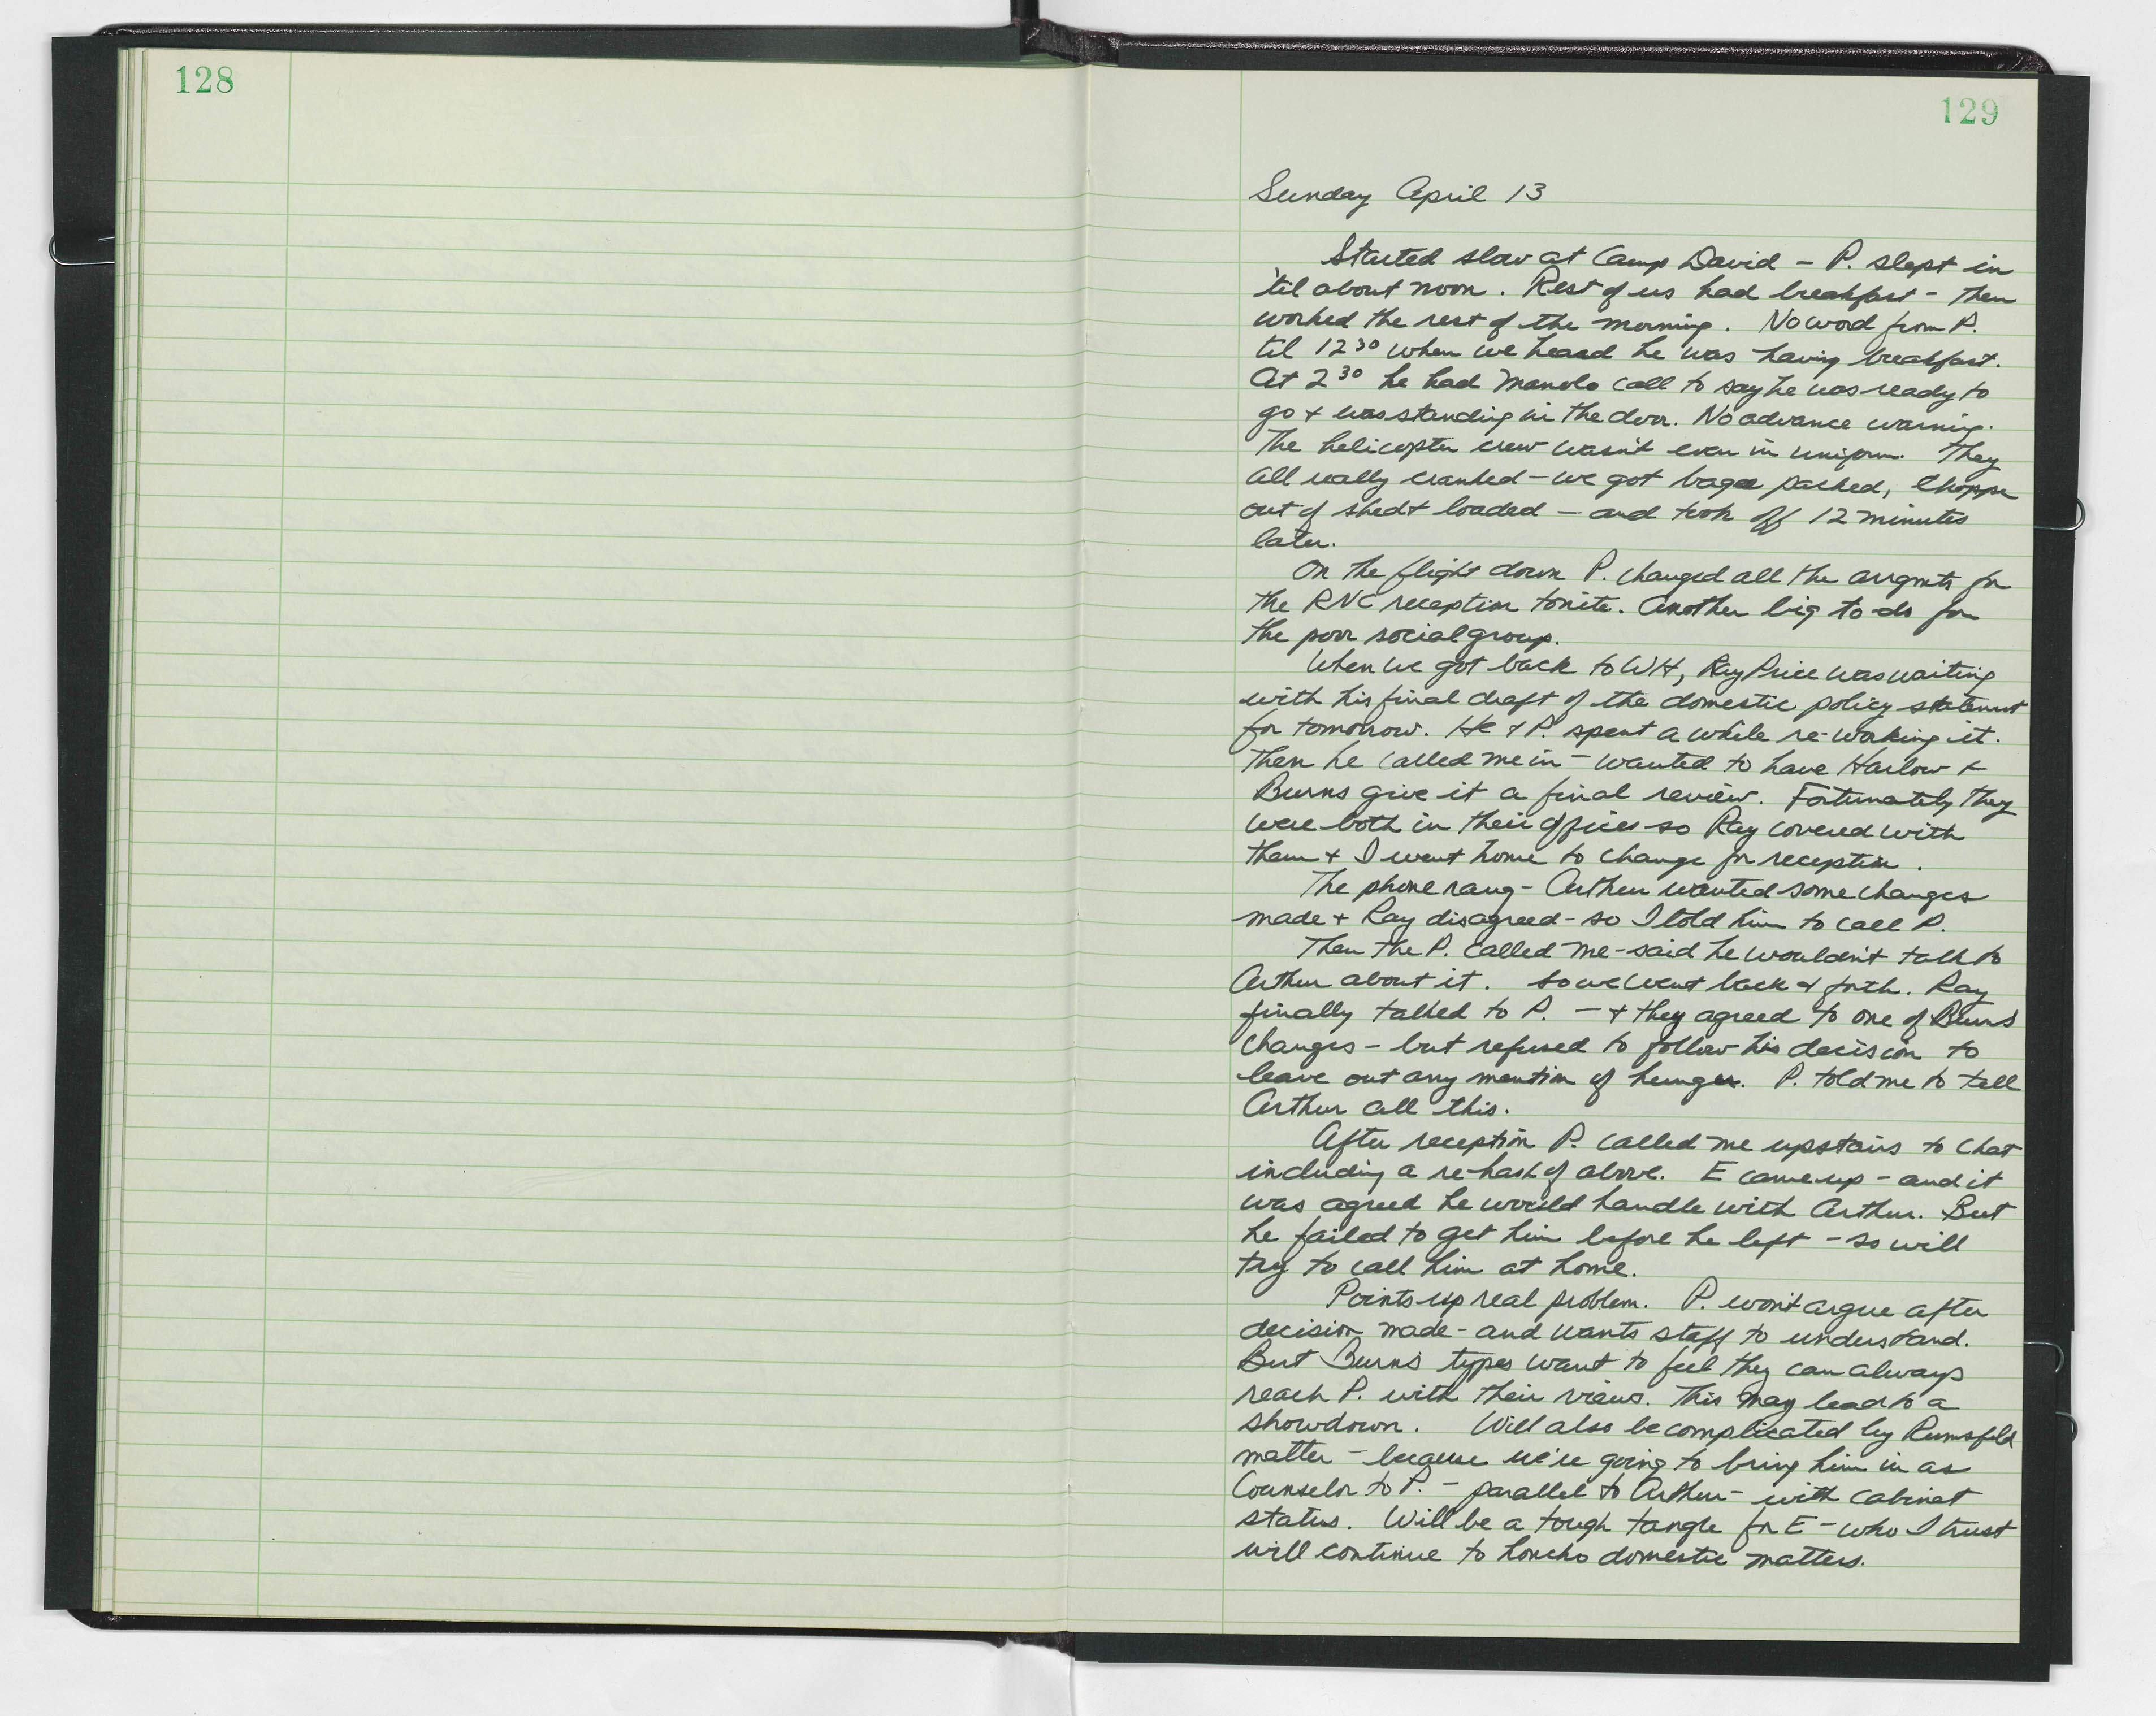 128
129
Sunday April 13
Started slow at Camp David – P. slept in
'til about noon. Rest of us had breakfast – then
worked the rest of the morning. No word from P.
til 12³⁰ when we heard he was having breakfast.
At 2³⁰ he had Manolo call to say he was ready to
go + was standing in the door. No advance warning.
The helicopter crew wasn't even in uniform. They
all really cranked – we got bags packed, chopper
out of shed + loaded – and took off 12 minutes
later.
On the flight down P. changed all the arrgmts for
the RNC reception tonite. Another big to-do for
the poor social group.
When we got back to WH, Ray Price was waiting
with his final draft of the domestic policy statement
for tomorrow. He + P. spent a while re-working it.
Then he called me in – wanted to have Harlow +
Burns give it a final review. Fortunately they
were both in their offices so Ray covered with
them + I went home to change for reception.
The phone rang – Arthur wanted some changes
made + Ray disagreed – so I told him to call P.
Then the P. called me – said he wouldn't talk to
Arthur about it. So we went back + forth. Ray
finally talked to P. – + they agreed to one of Burns
changes – but refused to follow his decision to
leave out any mention of hunger. P. told me to tell
Arthur all this.
After reception P. called me upstairs to chat
including a re-hash of above. E came up – and it
was agreed he would handle with Arthur. But
he failed to get him before he left – so will
try to call him at home.
Points up real problem. P. won't argue after
decision made – and wants staff to understand.
But Burns types want to feel they can always
reach P. with their views. This may lead to a
showdown. Will also be complicated by Rumsfeld
matter – because we're going to bring him in as
Counselor to P. – parallel to Arthur – with cabinet
status. Will be a tough tangle for E – who I trust
will continue to honcho domestic matters.